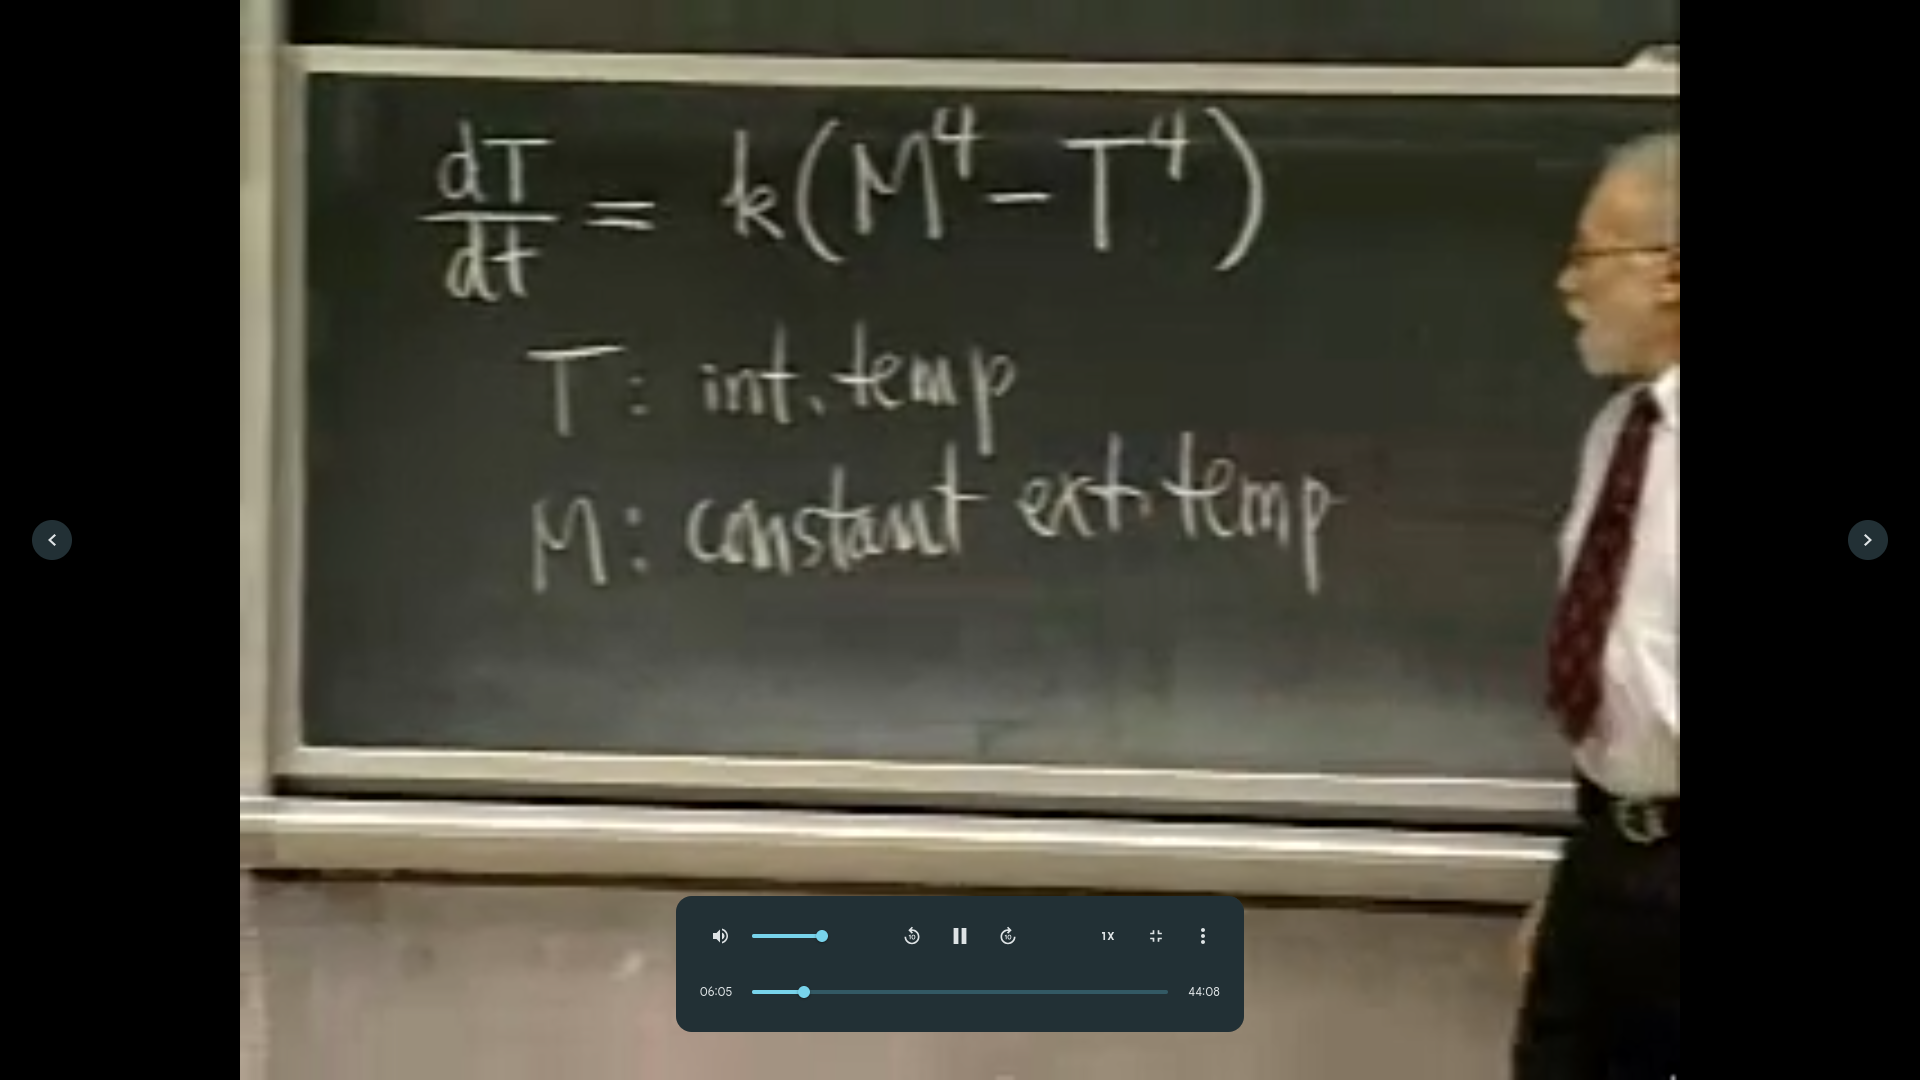 dT/dt = k(M⁴ - T⁴)
T: int. temp
M: constant ext. temp
10
10
1X
06:05
44:08